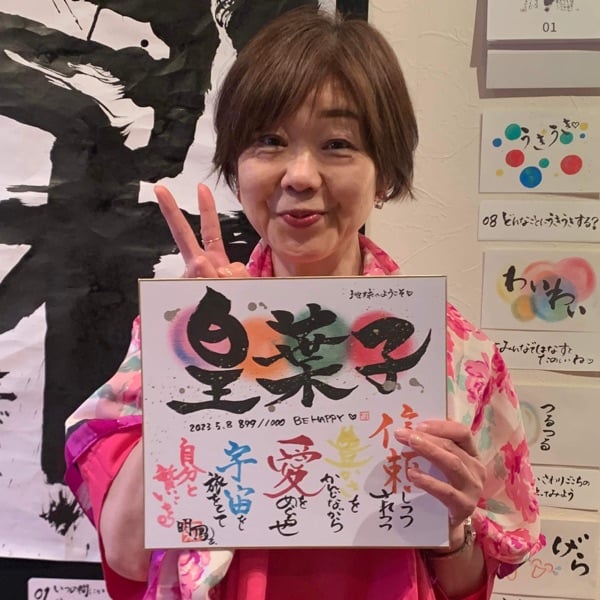 地球へようこそ♡
皇葉子
2023.5.8 899/1000 BE HAPPY ♡
信頼しつつ
されつつ
豊かさを
かなでながら
愛を
めぐらせ
宇宙を
旅をして
自分と
01
うきうき♡
08 どんなことにうきうきする?
わいわい
みんなではなすと
たのしいね
つるつる
さわりごこちの
げら
01 いつの間に